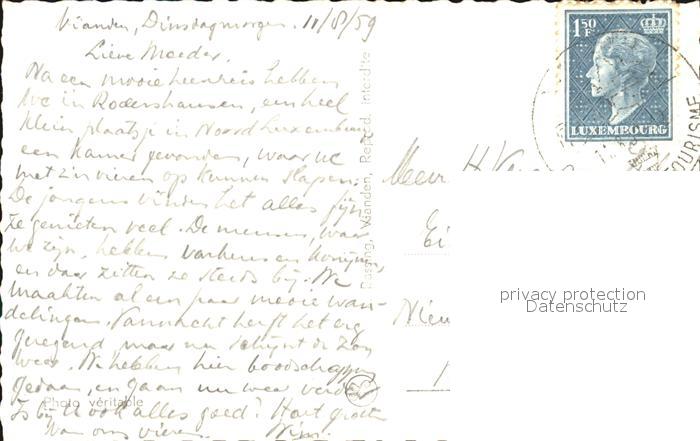 Vianden, Dinsdagmorgen. 11/8/59
Lieve Moeder,
Na een mooie heenreis hebben
we in Rodershausen, een heel
klein plaatsje in Noord Luxemburg
een kamer gevonden, waar we
met z'n vieren op kunnen slapen.
De jongens vinden het alles fijn,
ze genieten veel. De mensen, waar
we zijn, hebben varkens en konijnen,
en daar zitten ze steeds bij. We
maakten al een paar mooie wan-
delingen. Vannacht heeft het erg
geregend, maar nu schijnt de zon
weer. We hebben hier boodschappen
gedaan, en gaan nu weer verder
Is bij U ook alles goed? Hart. groeten
van ons vieren. Wim
Photo véritable
Vianden, Reprod. Interdite
1.50 F
LUXEMBOURG
TOURISME
Meur H.
Nieu
privacy protection
Datenschutz